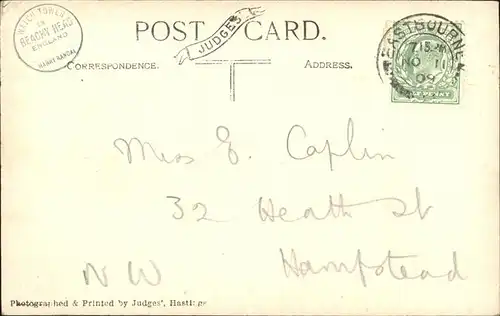 WATCH TOWER
ON
BEACHY HEAD
ENGLAND
HARRY RANDAL
POST CARD.
JUDGES'
CORRESPONDENCE.
ADDRESS.
EASTBOURNE
7.15 PM
NO 11
09
Miss E. Caplin
32 Heath St
Hampstead
NW
Photographed & Printed by Judges', Hastings